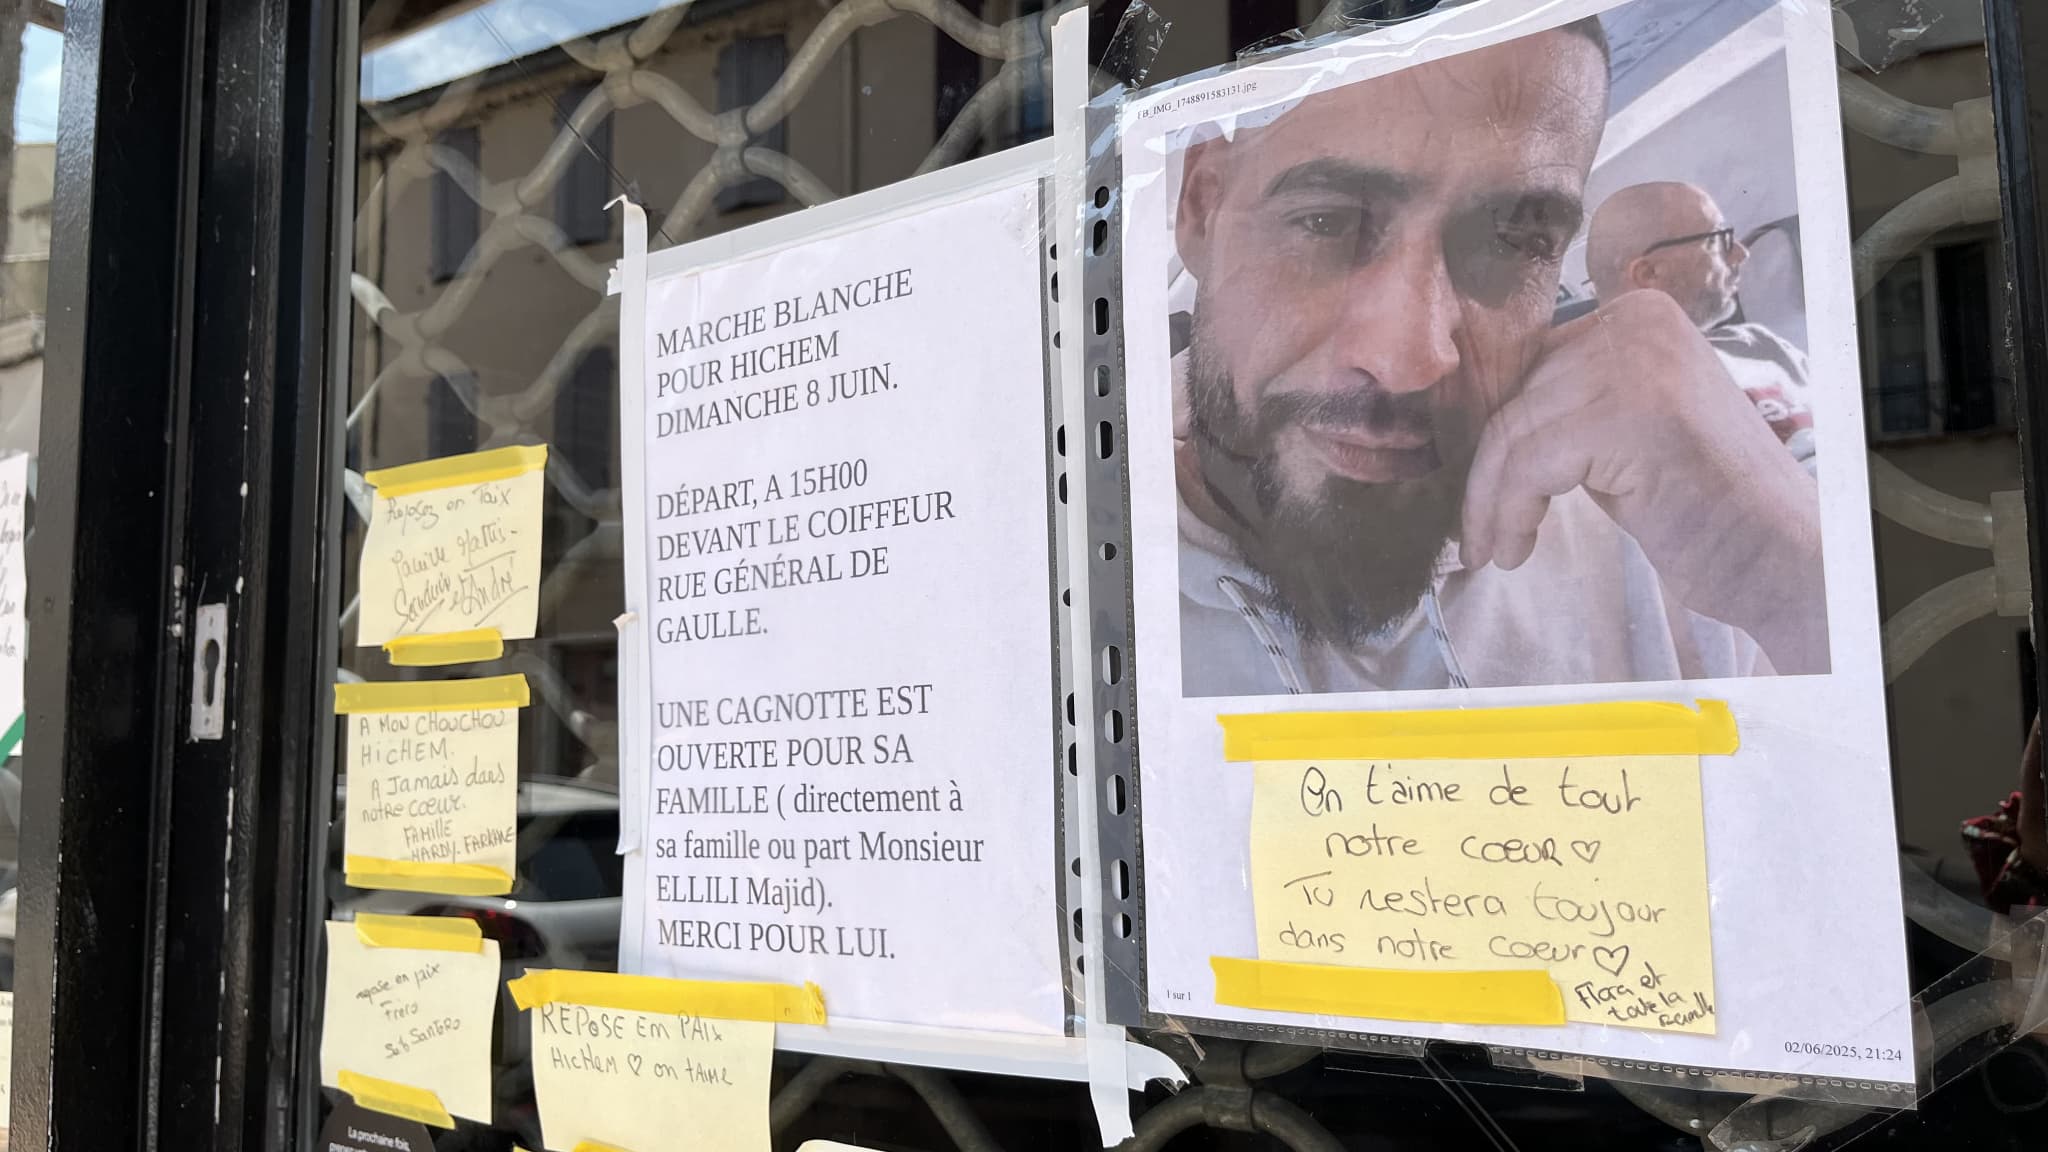 MARCHE BLANCHE
POUR HICHEM
DIMANCHE 8 JUIN.
DÉPART, A 15H00
DEVANT LE COIFFEUR
RUE GÉNÉRAL DE
GAULLE.
UNE CAGNOTTE EST
OUVERTE POUR SA
FAMILLE ( directement à
sa famille ou part Monsieur
ELLILI Majid).
MERCI POUR LUI.
FB_IMG_1748891583131.jpg
On t'aime de tout
notre coeur ♡
Tu restera toujour
dans notre coeur ♡
Flora et
toute la
famille
1 sur 1
02/06/2025, 21:24
Reposez en Paix
et André
A MON CHOUCHOU
HiCHEM.
A Jamais dans
notre coeur.
FAMILLE
HARDY-FARKANE
repose en paix
Frero
Seb Santoro
REPOSE EM PAIX
HicHEM ♡ on tAIME
La prochaine fois,